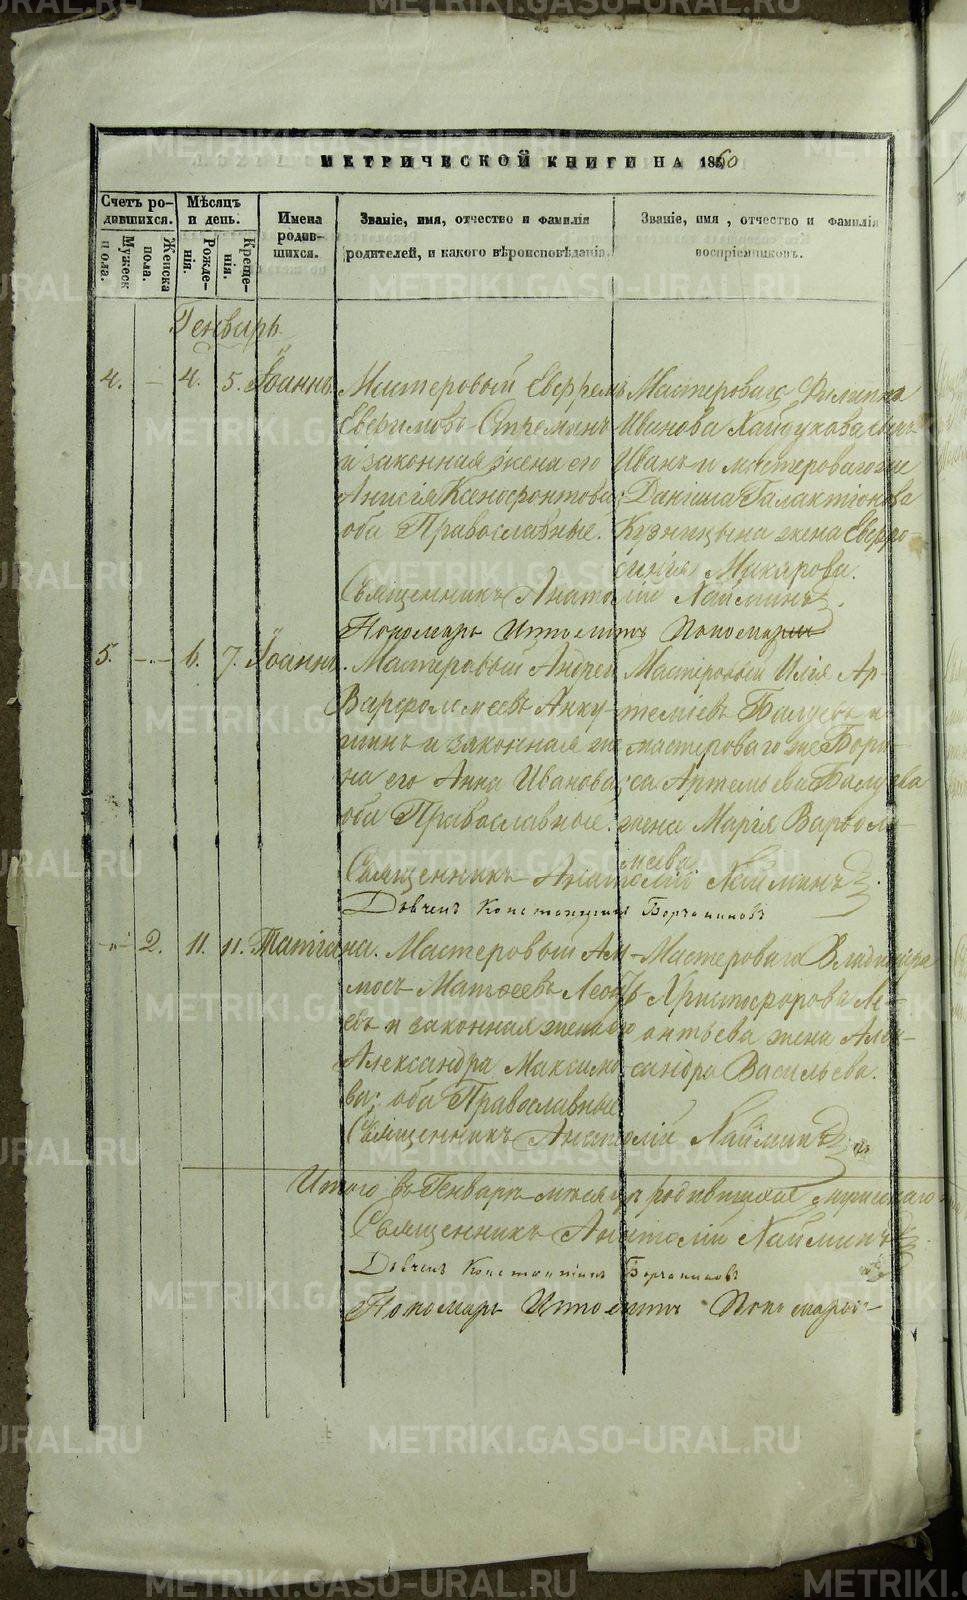 МЕТРИЧЕСКОЙ КНИГИ НА 1860
Счетъ ро-
дившихся.
Мѣсяцъ
и день.
Имена
родив-
шихся.
Званіе, имя, отчество и фамилія
родителей, и какого вѣроисповѣданія.
Званіе, имя, отчество и фамилія
воспріемниковъ.
Мужеска
пола.
Женска
пола.
Рожде-
нія.
Креще-
нія.
Генварь
4. — 4. 5. Іоаннъ. Мастеровой Евфремъ
Евфимовъ Стремин
и законная жена его
Анисія Ксенофонтова;
оба Православные.
Мастероваго Филиппа
Иванова сынъ
Иванъ и мастероваго же
Данїила Галактіонова
Кузницына жена Евфро-
синія Макарова.
Священникъ Анатолій Наймин
Пономарь Ипполитъ Пономарев
5. — 6. 7. Іоаннъ. Мастеровый Андрей
Варфоломеевъ Анку-
шинъ и законная же-
на его Анна Иванова;
оба Православные.
Мастеровый Илія Ар-
темьевъ Балуевъ и
мастероваго же Бори-
са Артемьева Балуева
жена Марія Варфоло-
меева
Священникъ Анатолій Наймин
Константинъ
— 2. 11. 11. Татіана. Мастеровый Ам-
мосъ Матвеевъ
и законная жена его
Александра Максимо-
ва; оба Православные
Мастероваго Владиміра
Христофорова Ле-
онтьева жена Алек-
сандра Васильева.
Священникъ Анатолій Наймин
Итого въ Генварѣ мѣсяцѣ родившихся мужескаго
Священникъ Анатолій Наймин
Константинъ
Пономарь Ипполитъ Пономарев
METRIKI.GASO-URAL.RU